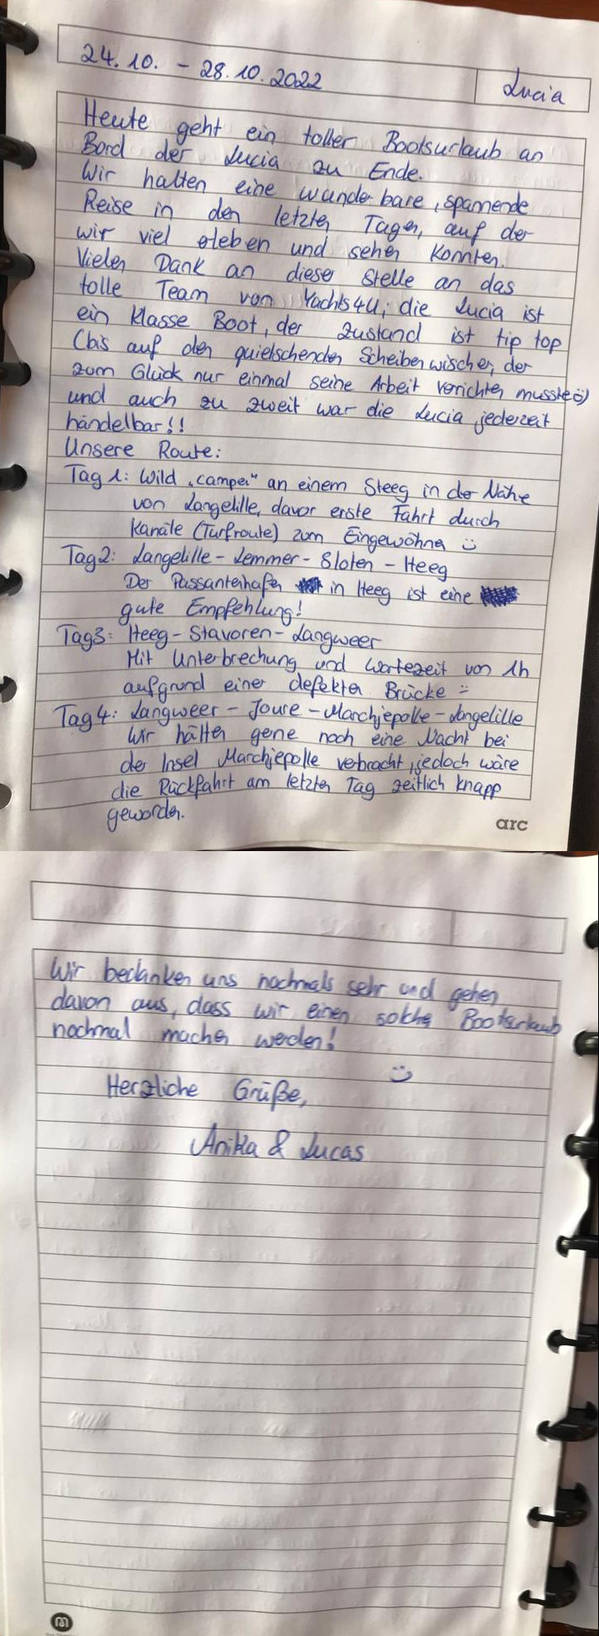 24.10. - 28.10.2022
Lucia
Heute geht ein toller Bootsurlaub an
Bord der Lucia zu Ende.
Wir hatten eine wunderbare, spannende
Reise in den letzten Tagen, auf der
wir viel erleben und sehen konnten.
Vielen Dank an dieser Stelle an das
tolle Team von Yachts4U, die Lucia ist
ein klasse Boot, der Zustand ist tip top
(bis auf den quietschenden Scheibenwischer, der
zum Glück nur einmal seine Arbeit verrichten musste ü)
und auch zu zweit war die Lucia jederzeit
händelbar!!
Unsere Route:
Tag 1: Wild „campen" an einem Steeg in der Nähe
von Langelille, davor erste Fahrt durch
Kanäle (Turfroute) zum Eingewöhnen ü
Tag2: Langelille - Lemmer - Sloten - Heeg
Der Passantenhafen in Heeg ist eine
gute Empfehlung!
Tag3: Heeg - Stavoren - Langweer
Mit Unterbrechung und Wartezeit von 1h
aufgrund einer defekten Brücke :-
Tag 4: Langweer - Joure - Marchjepolle - Langelille
Wir hätten gerne noch eine Nacht bei
der Insel Marchjepolle verbracht, jedoch wäre
die Rückfahrt am letzten Tag zeitlich knapp
geworden.
arc
Wir bedanken uns nochmals sehr und gehen
davon aus, dass wir einen solchen Bootsurlaub
nochmal machen werden!
:)
Herzliche Grüße,
Anika & Lucas
m